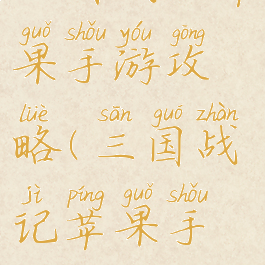 guǒ shǒu yóu gōng
果手游攻
lüè sān guó zhàn
略(三国战
jì píng guǒ shǒu
记苹果手